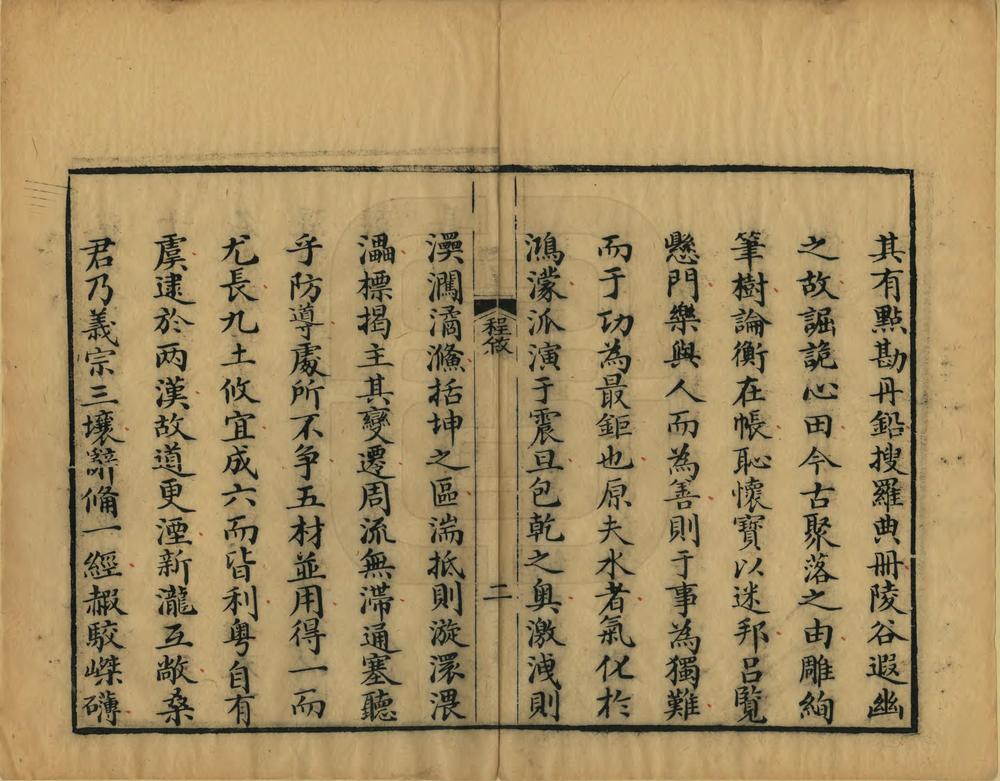 其有點勘丹鉛搜羅典冊陵谷遐幽
之故詘詭心田今古聚落之由雕絢
筆樹論衡在帳恥懷寶以迷邦呂覽
懸門樂與人而為善則于事為獨難
而于功為最鉅也原夫水者氣化於
鴻濛派演于震旦包乾之奧激洩則
程敘
二
澳瀾潏㶑括坤之區湍抵則漩澴渨
㵽標揭主其變遷周流無滯通塞聽
乎防導處所不爭五材並用得一而
尤長九土攸宜成六而皆利粤自有
虞逮於两漢故道更湮新瀧互敞桑
君乃義宗三壤辭俻一經赮駮嶫礴